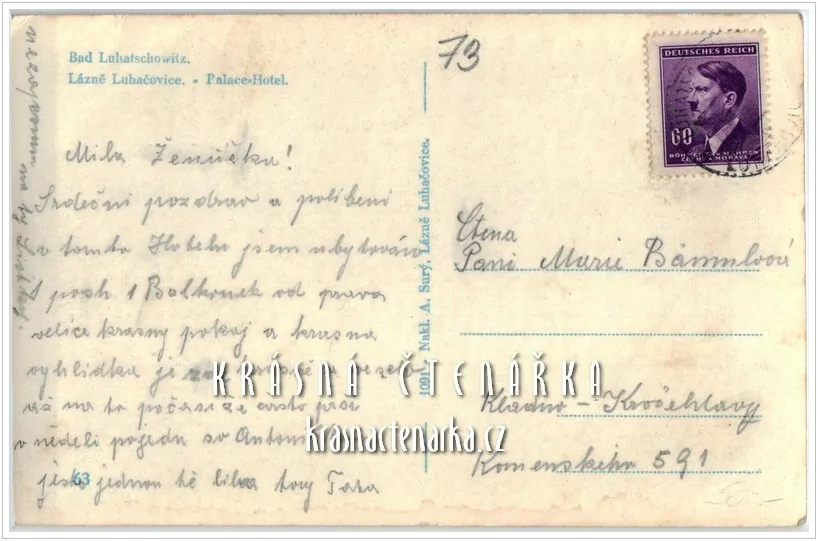 Bad Luhatschowitz.
Lázně Luhačovice. - Palace-Hotel.
73
DEUTSCHES REICH
60
BÖHMEN UND MÄHREN
ČECHY A MORAVA
Milá Ženúčko!
Srdečni pozdrav a políbení
v tomto Hotelu jsem ubytován
1 posh 1 Balkonek od prava
velice krasny pokoj a krasna
vyhlídka je
až na to počasí že často prse
v neděli pojedu sv Antoní
ješt jednou tě líba tvuj Tata
1091 Nakl. A. Surý, Lázně Luhačovice.
Ctena
Pani Marie Bämmlová
Kladno - Kročehlavy
Komenskeho 591
63
KRÁSNÁ ČTENÁŘKA
krasnactenarka.cz